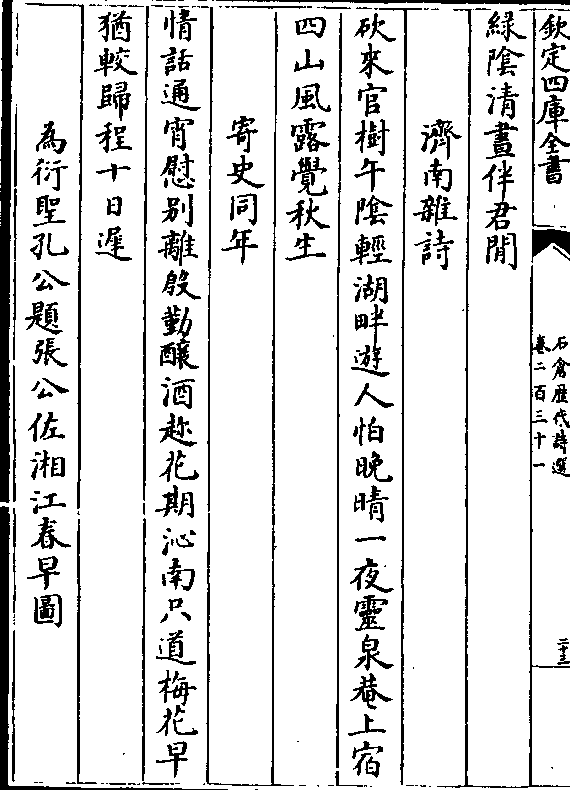 欽定四庫全書
石倉歷代詩選
卷二百三十一
二十三
緑陰清晝伴君閒
濟南雜詩
砍來官樹午陰輕湖畔遊人怕晚晴一夜靈泉菴上宿
四山風露覺秋生
寄史同年
情話通宵慰別離殷勤釀酒趂花期沁南只道梅花早
猶較歸程十日遲
為衍聖孔公題張公佐湘江春早圖